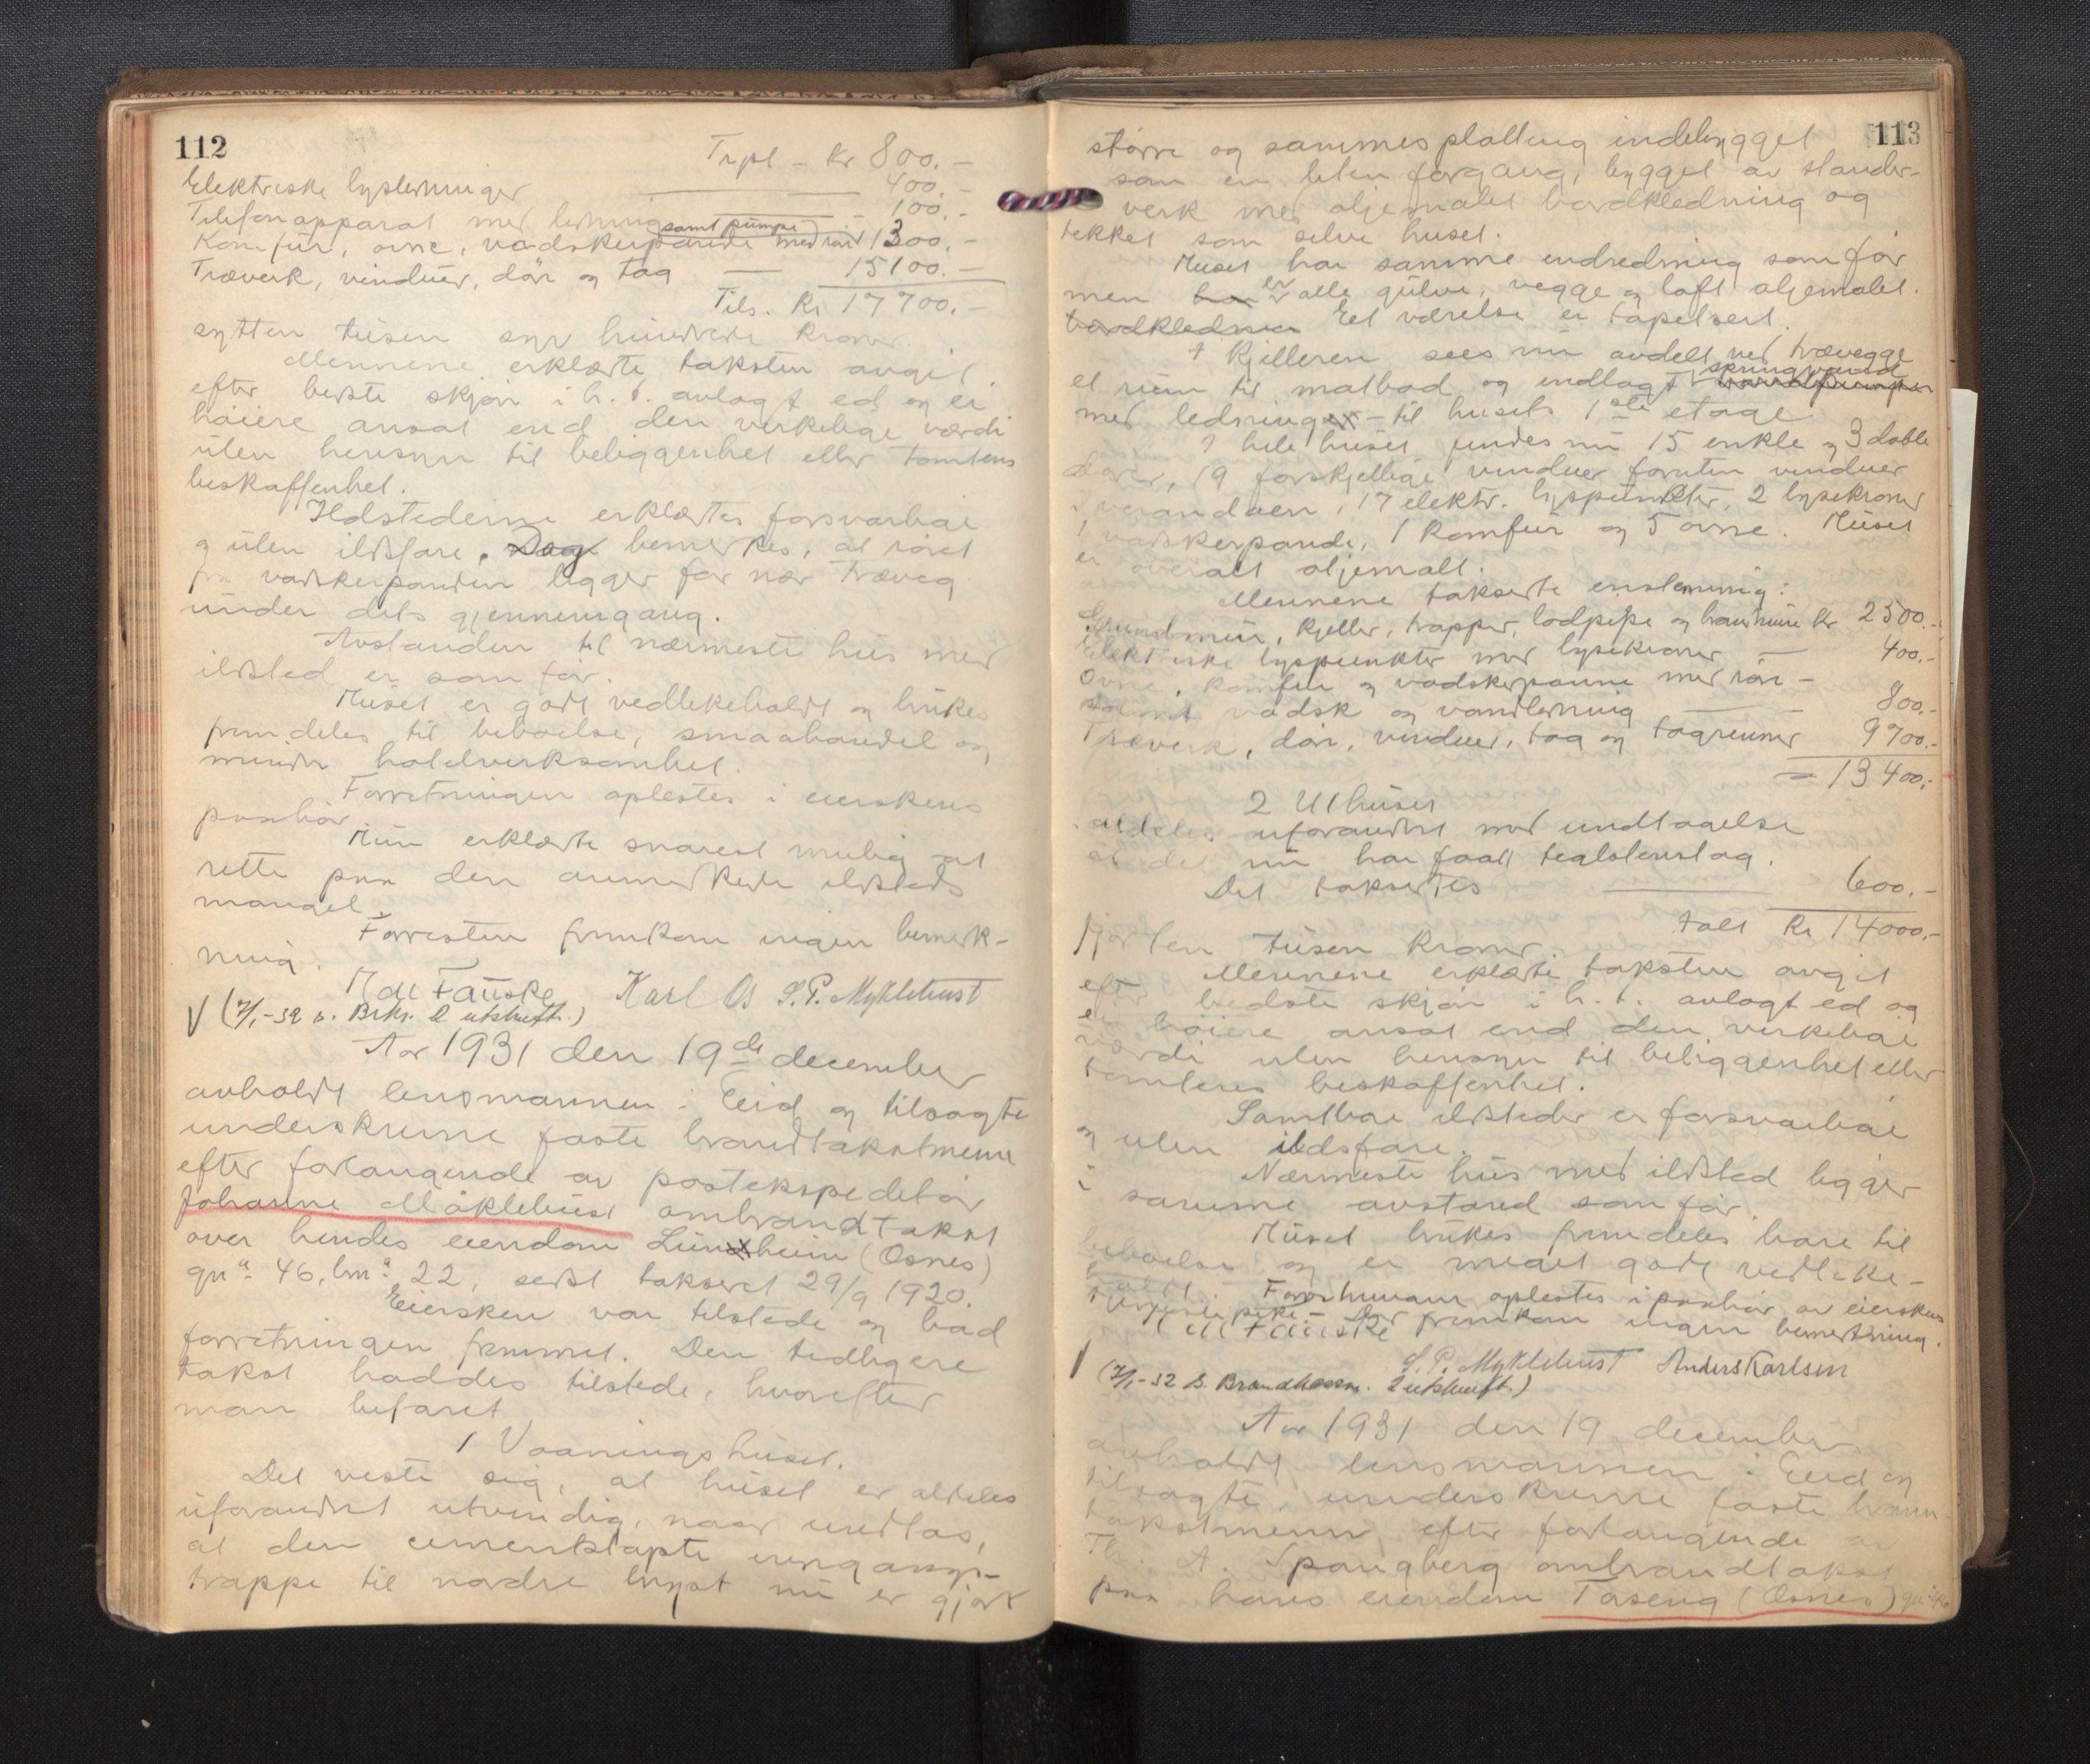 112
Trpt – Kr 800.–
Elektriske lysledninger — 400.–
Telefonapparat med ledning — 100.–
samt pumpe
Komfür, ovne, vadskerpande med rør 1300.–
Træverk, vinduer, dør og tag — 15100.–
Tils. Kr 17700.–
sytten tusen syv hundrede kroner.
Mennene erklærte taksten avgit
efter beste skjøn i h. t. avlagt ed og er
høiere ansat end den virkelige værdi
uten hensyn til beliggenhet eller tomtens
beskaffenhet.
Ildstederne erklærtes forsvarlige
og uten ildsfare. Dog bemerkes, at røret
fra vadskerpanden ligger for nær trævæg
under dets gjennemgang.
Avstanden til nærmeste hus med
ildsted er som før.
Huset er godt vedlikeholdt og brukes
fremdeles til beboelse, smaahandel og
mindre hotelverksomhet.
Forretningen oplestes i eierskens
paahør.
Hun erklærte snarest mulig at
rette paa den anmerkede ildsteds
mangel.
Forresten fremkom ingen bemerk-
ning.
M du Fauske Karl Os S. P. Myklebust
√ (7/1-32 s. Brks. 2 utskrift.)
Aar 1931 den 19de december
avholdt lensmannen i Eid og tilsagte
underskrevne faste brandtakstmenn
efter forlangende av postekspeditør
Johanne Måklebust ombrandtakst
over hendes eiendom Lundheim (Osnes)
gn.a 46, bn.a 22, sidst taksert 29/9 1920.
Eiersken var tilstede og bad
forretningen fremmet. Den tidligere
takst haddes tilstede, hvorefter
man befaret
1 Vaaningshuset.
Det viste sig, at huset er aldeles
uforandret utvendig, naar undtas,
at den cementstøpte inngangs-
trappe til nordre bygst nu er gjort
113
større og sammes platting indebygget
som en liten forgang, bygget av stander-
verk med oljemalet bordkledning og
tekket som selve huset.
Huset har samme indredning som før
men har er alle gulve, vegge og loft oljemalet.
bordkledning Eet værelse er tapetsert.
I kjelleren sees nu avdelt ved trævegge
et rum til matbod og indlagt springvand vandpumpe
med ledninger til husets 1ste etage
I hele huset findes nu 15 enkle og 3 doble
dører, 19 forskjellige vinduer foruten vinduer
i verandaen, 17 elektr. lyspunkter, 2 lysekroner
1 vadskerpande, 1 komfur og 5 ovne. Huset
er overalt oljemalt.
Mennene takserte enstemmig:
Grundmur, kjeller, trapper, lodpipe og brandmur kr 2500.–
Elektriske lyspunkter med lysekroner — 400.–
Ovne, komfur og vadskerpanne med rør –
samt vadsk og vandledning — 800.–
Træverk, dør, vinduer, tag og tagrenner 9700.–
= 13400.–
2 Uthuset
aldeles uforandret med undtagelse
at det nu har faatt teglstenstag.
Det takseres — 600.–
talt Kr 14000.–
fjorten tusen kroner.
Mennene erklærte taksten avgit
efter bedste skjøn i h. t. avlagt ed og
er høiere ansat end den virkelige
værdi uten hensyn til beliggenhet eller
tomtens beskaffenhet.
Samtlige ildsteder er forsvarlige
og uten ildsfare.
Nærmeste hus med ildsted ligger
i samme avstand som før.
Huset brukes fremdeles bare til
beboelse og er meget godt vedlike-
holdt. Forretningen oplestes i paahør av eiersken
Der fremkom ingen bemerkning.
M du Fauske
S. P. Myklebust Anders Karlsen
√ (7/1-32 s. Brandkassen. 2 utskrift.)
Aar 1931 den 19 december
avholdt lensmannen i Eid og
tilsagte, underskrevne faste brann-
takstmenn efter forlangende av
Th. A. Spangberg ombrandtakst
paa hans eiendom Taseng (Osnes) gn. 46